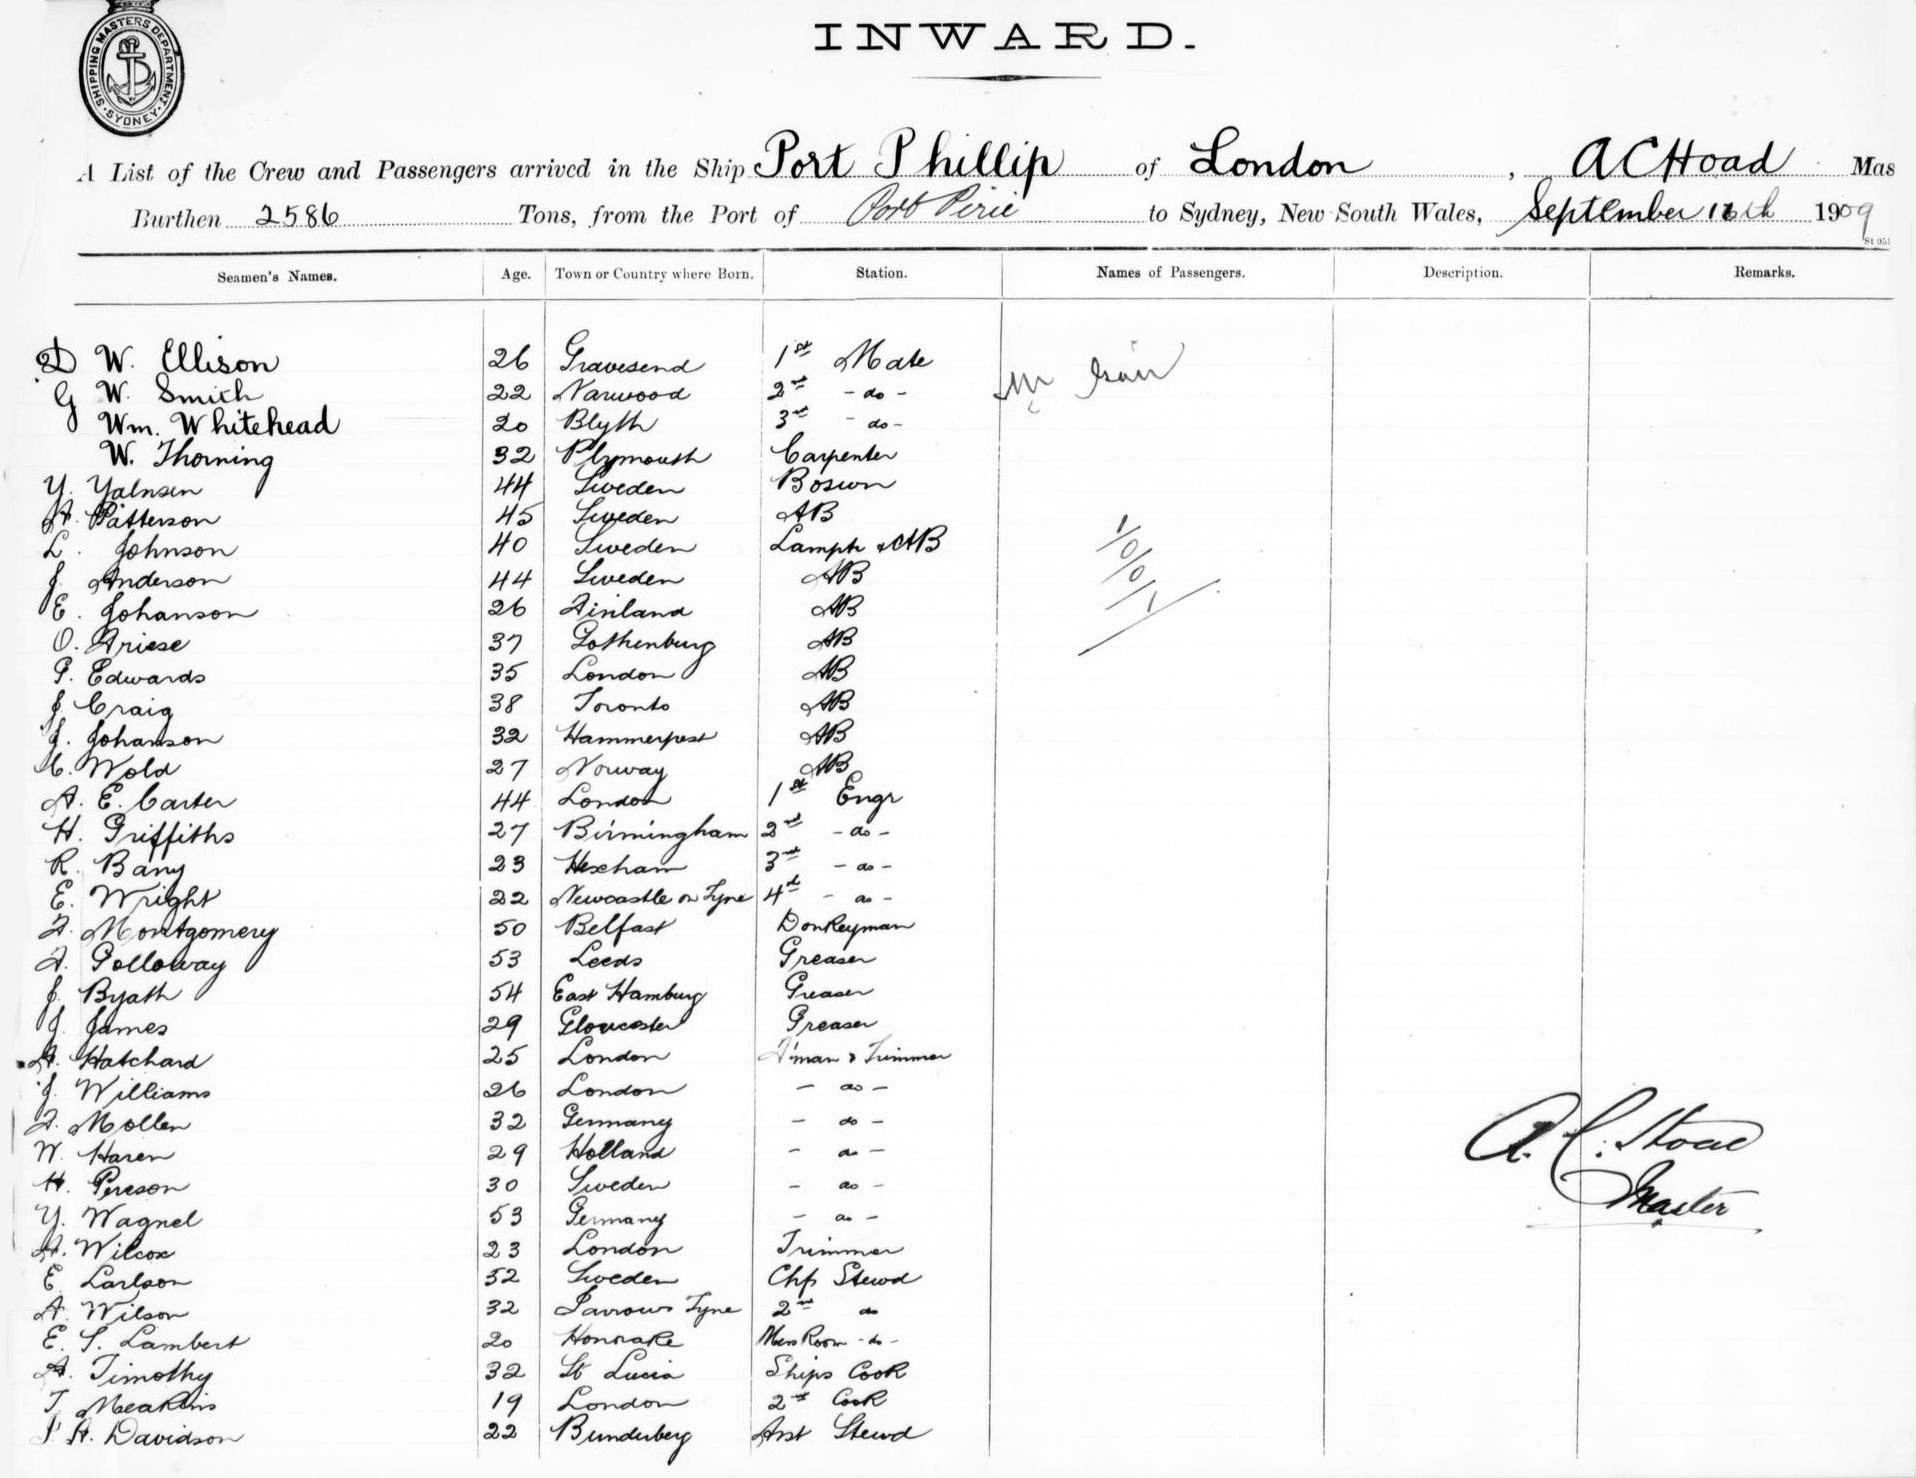 SHIPPING MASTERS DEPARTMENT
SYDNEY
INWARD.
A List of the Crew and Passengers arrived in the Ship Port Phillip of London, A C Hoad Mas
Burthen 2586 Tons, from the Port of Port Pirie to Sydney, New South Wales, September 16th 1909
St 951
Seamen's Names. Age. Town or Country where Born. Station. Names of Passengers. Description. Remarks.
D W. Ellison 26 Gravesend 1st Mate
G W. Smith 22 Narwood 2nd - do - Mr
Wm. Whitehead 20 Blyth 3rd - do -
W. Thorning 32 Plymouth Carpenter
Y. Yalnsen 44 Sweden Boswn
A. Patterson 45 Sweden AB
L. Johnson 40 Sweden Lamptr & AB
J. Anderson 44 Sweden AB
E. Johanson 26 Finland AB
O. Friese 37 Gothenburg AB
P. Edwards 35 London AB
J. Craig 38 Toronto AB
J. Johanson 32 Hammerfest AB
C. Wold 27 Norway AB
A. E. Carter 44 London 1st Engr
H. Griffiths 27 Birmingham 2nd - do -
R. Bany 23 Hexham 3rd - do -
E. Wright 22 Newcastle on Tyne 4th - do -
F. Montgomery 50 Belfast Donkeyman
F. Golloway 53 Leeds Greaser
J. Byath 54 East Hamburg Greaser
J. James 29 Gloucester Greaser
A. Hatchard 25 London F'man & Trimmer
J. Williams 26 London - do -
F. Mollen 32 Germany - do -
W. Haren 29 Holland - do -
H. Pereson 30 Sweden - do -
Y. Wagnel 53 Germany - do -
A. Wilcox 23 London Trimmer
E. Larlson 52 Sweden Chf Stewd
A. Wilson 32 Jarrow Tyne 2nd do
E. S. Lambert 20 Mess Room - do -
A. Timothy 32 St Lucia Ships Cook
T. Meakins 19 London 2nd Cook
A. Davidson 22 Bunderberg Asst Stewd
1/0/0/1
A. C. Hoad
Master